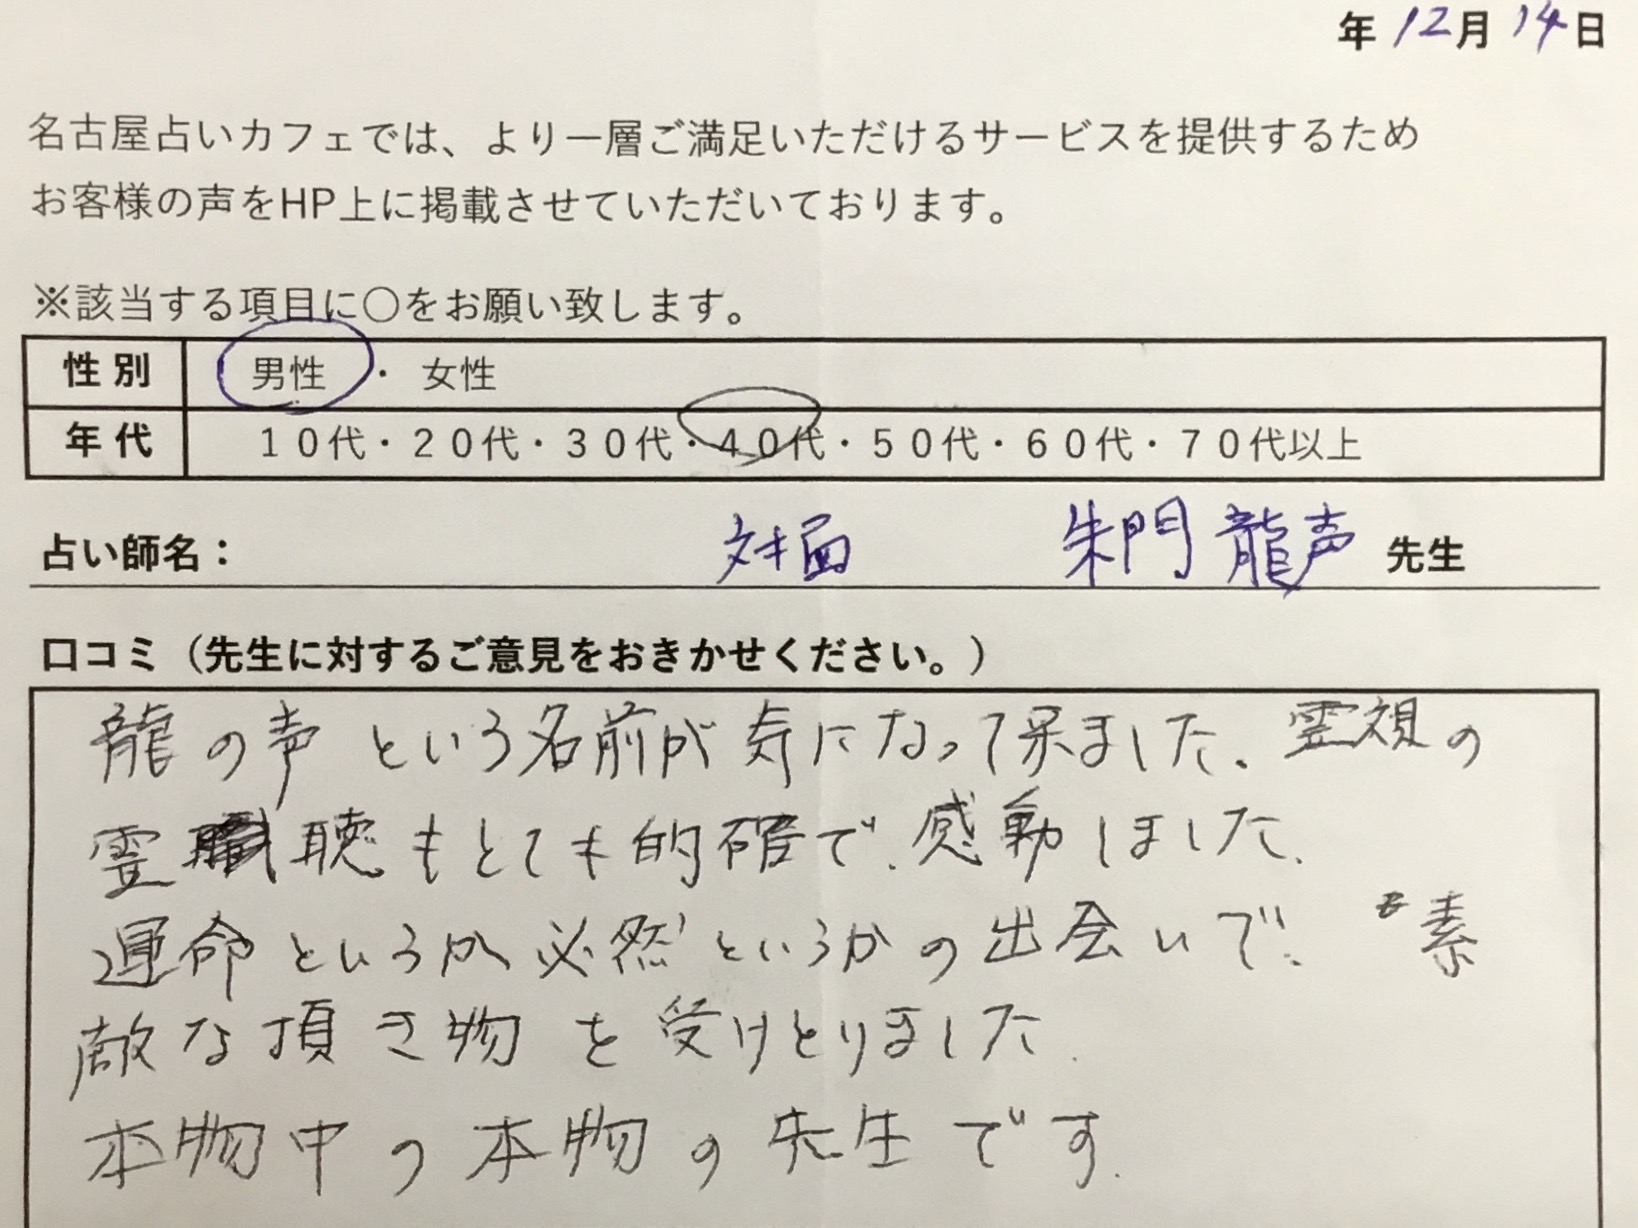 年 12月 14日
名古屋占いカフェでは、より一層ご満足いただけるサービスを提供するため
お客様の声をHP上に掲載させていただいております。
※該当する項目に〇をお願い致します。
性別 男性 ・ 女性
年代 10代・20代・30代・40代・50代・60代・70代以上
占い師名： 対面 朱門 龍声 先生
口コミ（先生に対するご意見をおきかせください。）
龍の声という名前が気になって来ました、霊視の
霊聴もとても的確で、感動しました、
運命というか必然というかの出会いで、素
敵な頂き物を受けとりました、
本物中の本物の先生です、